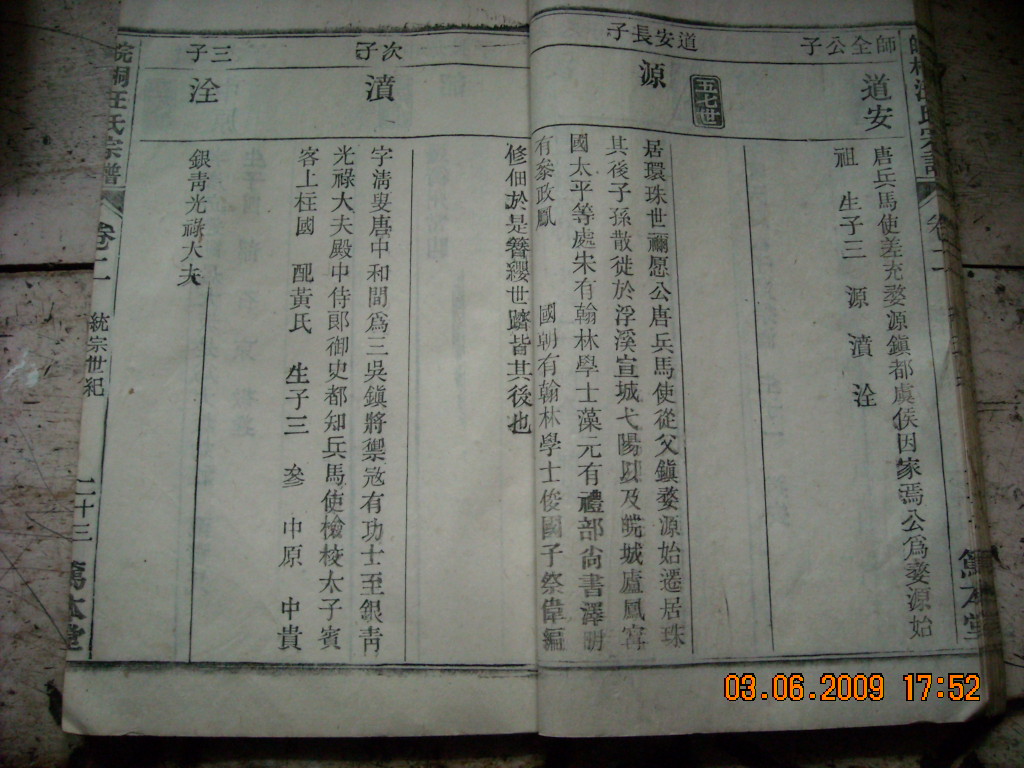 師全公子
道安
唐兵馬使差充婺源鎮都虞侯因家焉公為婺源始
祖 生子三 源 濆 淦
五七世
道安長子
源
居環珠世稱愿公唐兵馬使從父鎮婺源始遷居珠
其後子孫散徙於浮溪宣城弋陽以及皖城廬鳳宮
國太平等處宋有翰林學士藻元有禮部尚書澤明
有叅政鳳 國朝有翰林學士俊國子祭偉編
修佃於是簪纓世躋皆其後也
次子
濆
字清叟唐中和間爲三吳鎮將禦寇有功士至銀靑
光祿大夫殿中侍郎御史都知兵馬使檢校太子賓
客上柱國 配黃氏 生子三 叅 中原 中貴
三子
淦
銀青光祿大夫
皖桐汪氏宗譜
卷二
統宗世紀
二十三
篤本堂
03.06.2009 17:52